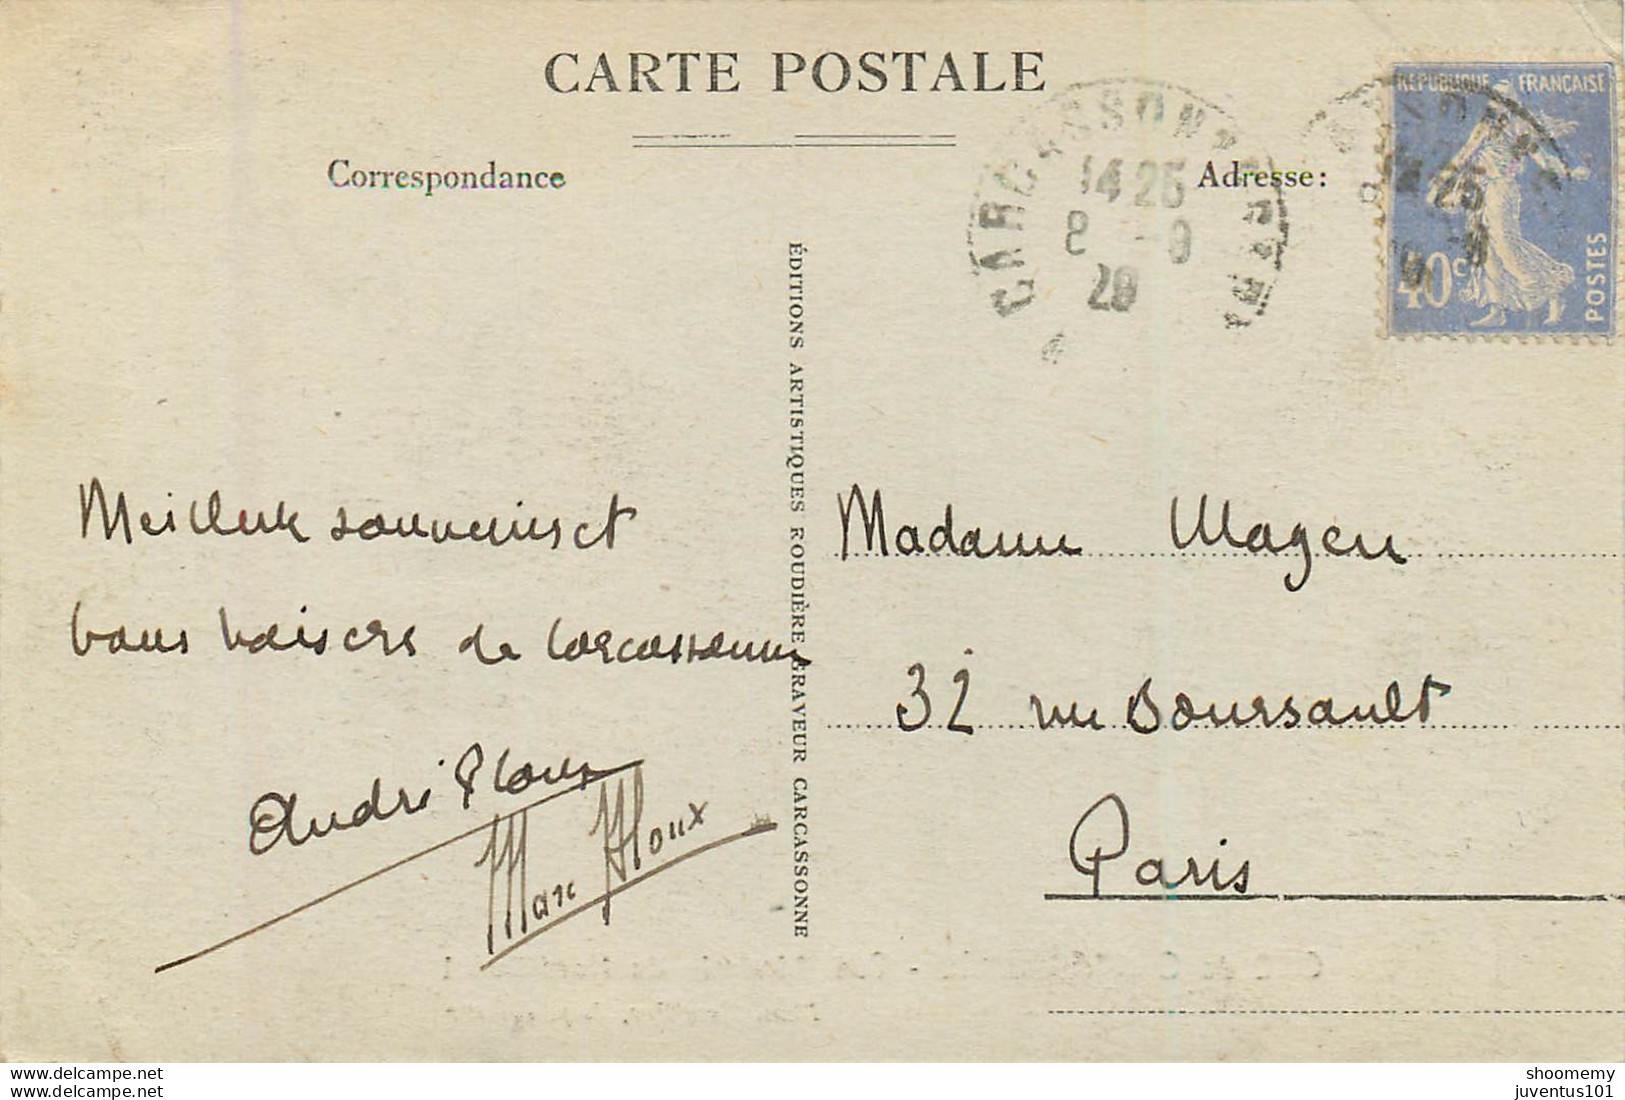 CARTE POSTALE
Correspondance
Adresse:
CARCASSONNE
14 25
8 -9
REPUBLIQUE FRANÇAISE
40c
POSTES
Meilleurs souvenirs et
bons baisers de Carcassonne
André Ploux
Marc Ploux
ÉDITIONS ARTISTIQUES ROUDIÈRE GRAVEUR CARCASSONNE
Madame Magen
32 rue Boursault
Paris
www.delcampe.net
www.delcampe.net
shoomemy
juventus101